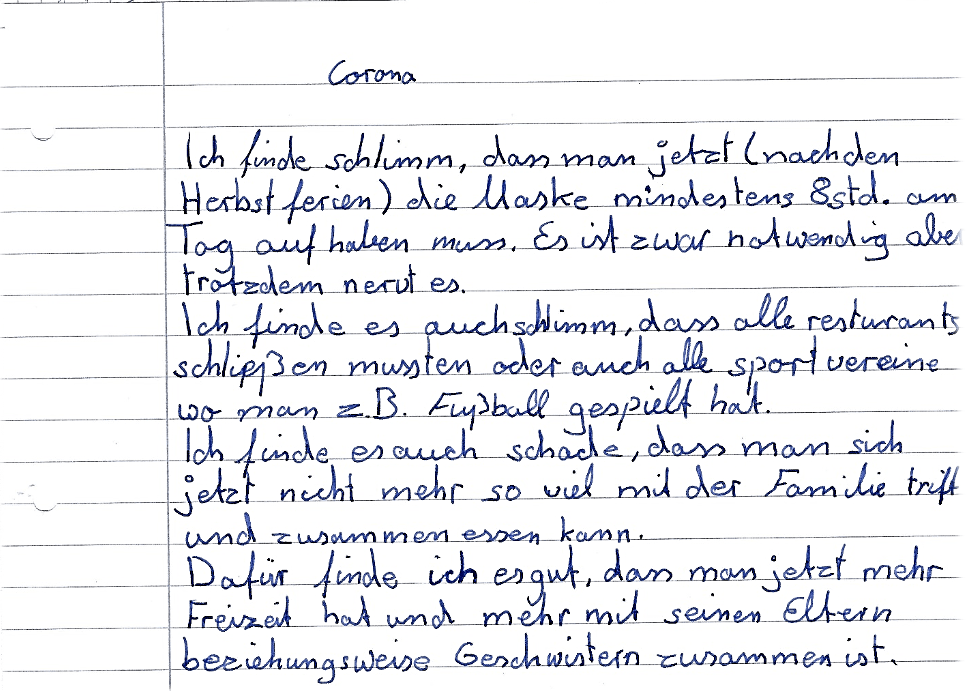 Corona
Ich finde schlimm, dass man jetzt (nach den
Herbstferien) die Maske mindestens 8std. am
Tag auf haben muss. Es ist zwar notwendig abe
trotzdem nervt es.
Ich finde es auch schlimm, dass alle resturants
schließen mussten oder auch alle sportvereine
wo man z.B. Fußball gespielt hat.
Ich finde es auch schade, dass man sich
jetzt nicht mehr so viel mit der Familie trift
und zusammen essen kann.
Dafür finde ich es gut, dass man jetzt mehr
Freizeit hat und mehr mit seinen Eltern
beziehungsweise Geschwistern zusammen ist.